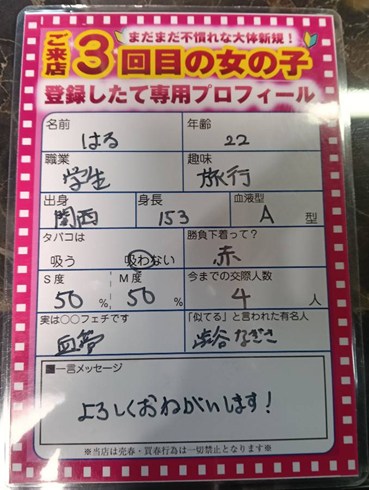 まだまだ不慣れな大体新規！
ご来店3回目の女の子
登録したて専用プロフィール
名前 はる 年齢 22
職業 学生 趣味 旅行
出身 関西 身長 153 血液型 A 型
タバコは 吸う 吸わない 勝負下着って？ 赤
S度 50 % M度 50 % 今までの交際人数 4 人
実は○○フェチです 血管 「似てる」と言われた有名人 渋谷なぎさ
■一言メッセージ
よろしくおねがいします！
※当店は売春・買春行為は一切禁止となります※